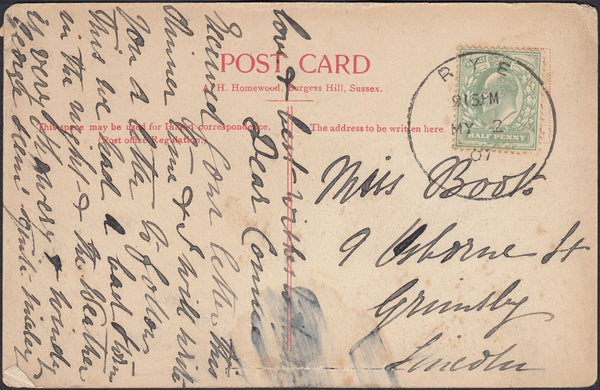 POST CARD
A. H. Homewood, Burgess Hill, Sussex.
This space may be used for Inland correspondence.
(Post office Regulation)
The address to be written here.
RYE
915PM
MY 2
07
HALF PENNY
Miss Booth
9 Osborne St
Grimsby
Lincoln
Dear
Received your letter this
dinner time & I will write
you a letter to follow
this we had a bad storm
in the night & the weather
is very showery & windy
George
love & best wishes